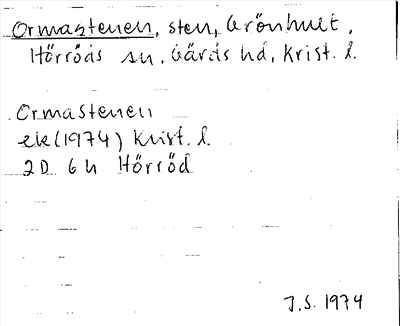 Ormastenen, sten, Grönhult,
Hörröds sn, Gärds hd, Krist. l.
Ormastenen
ek (1974) Krist. l.
2D 6h Hörröd
J.S. 1974